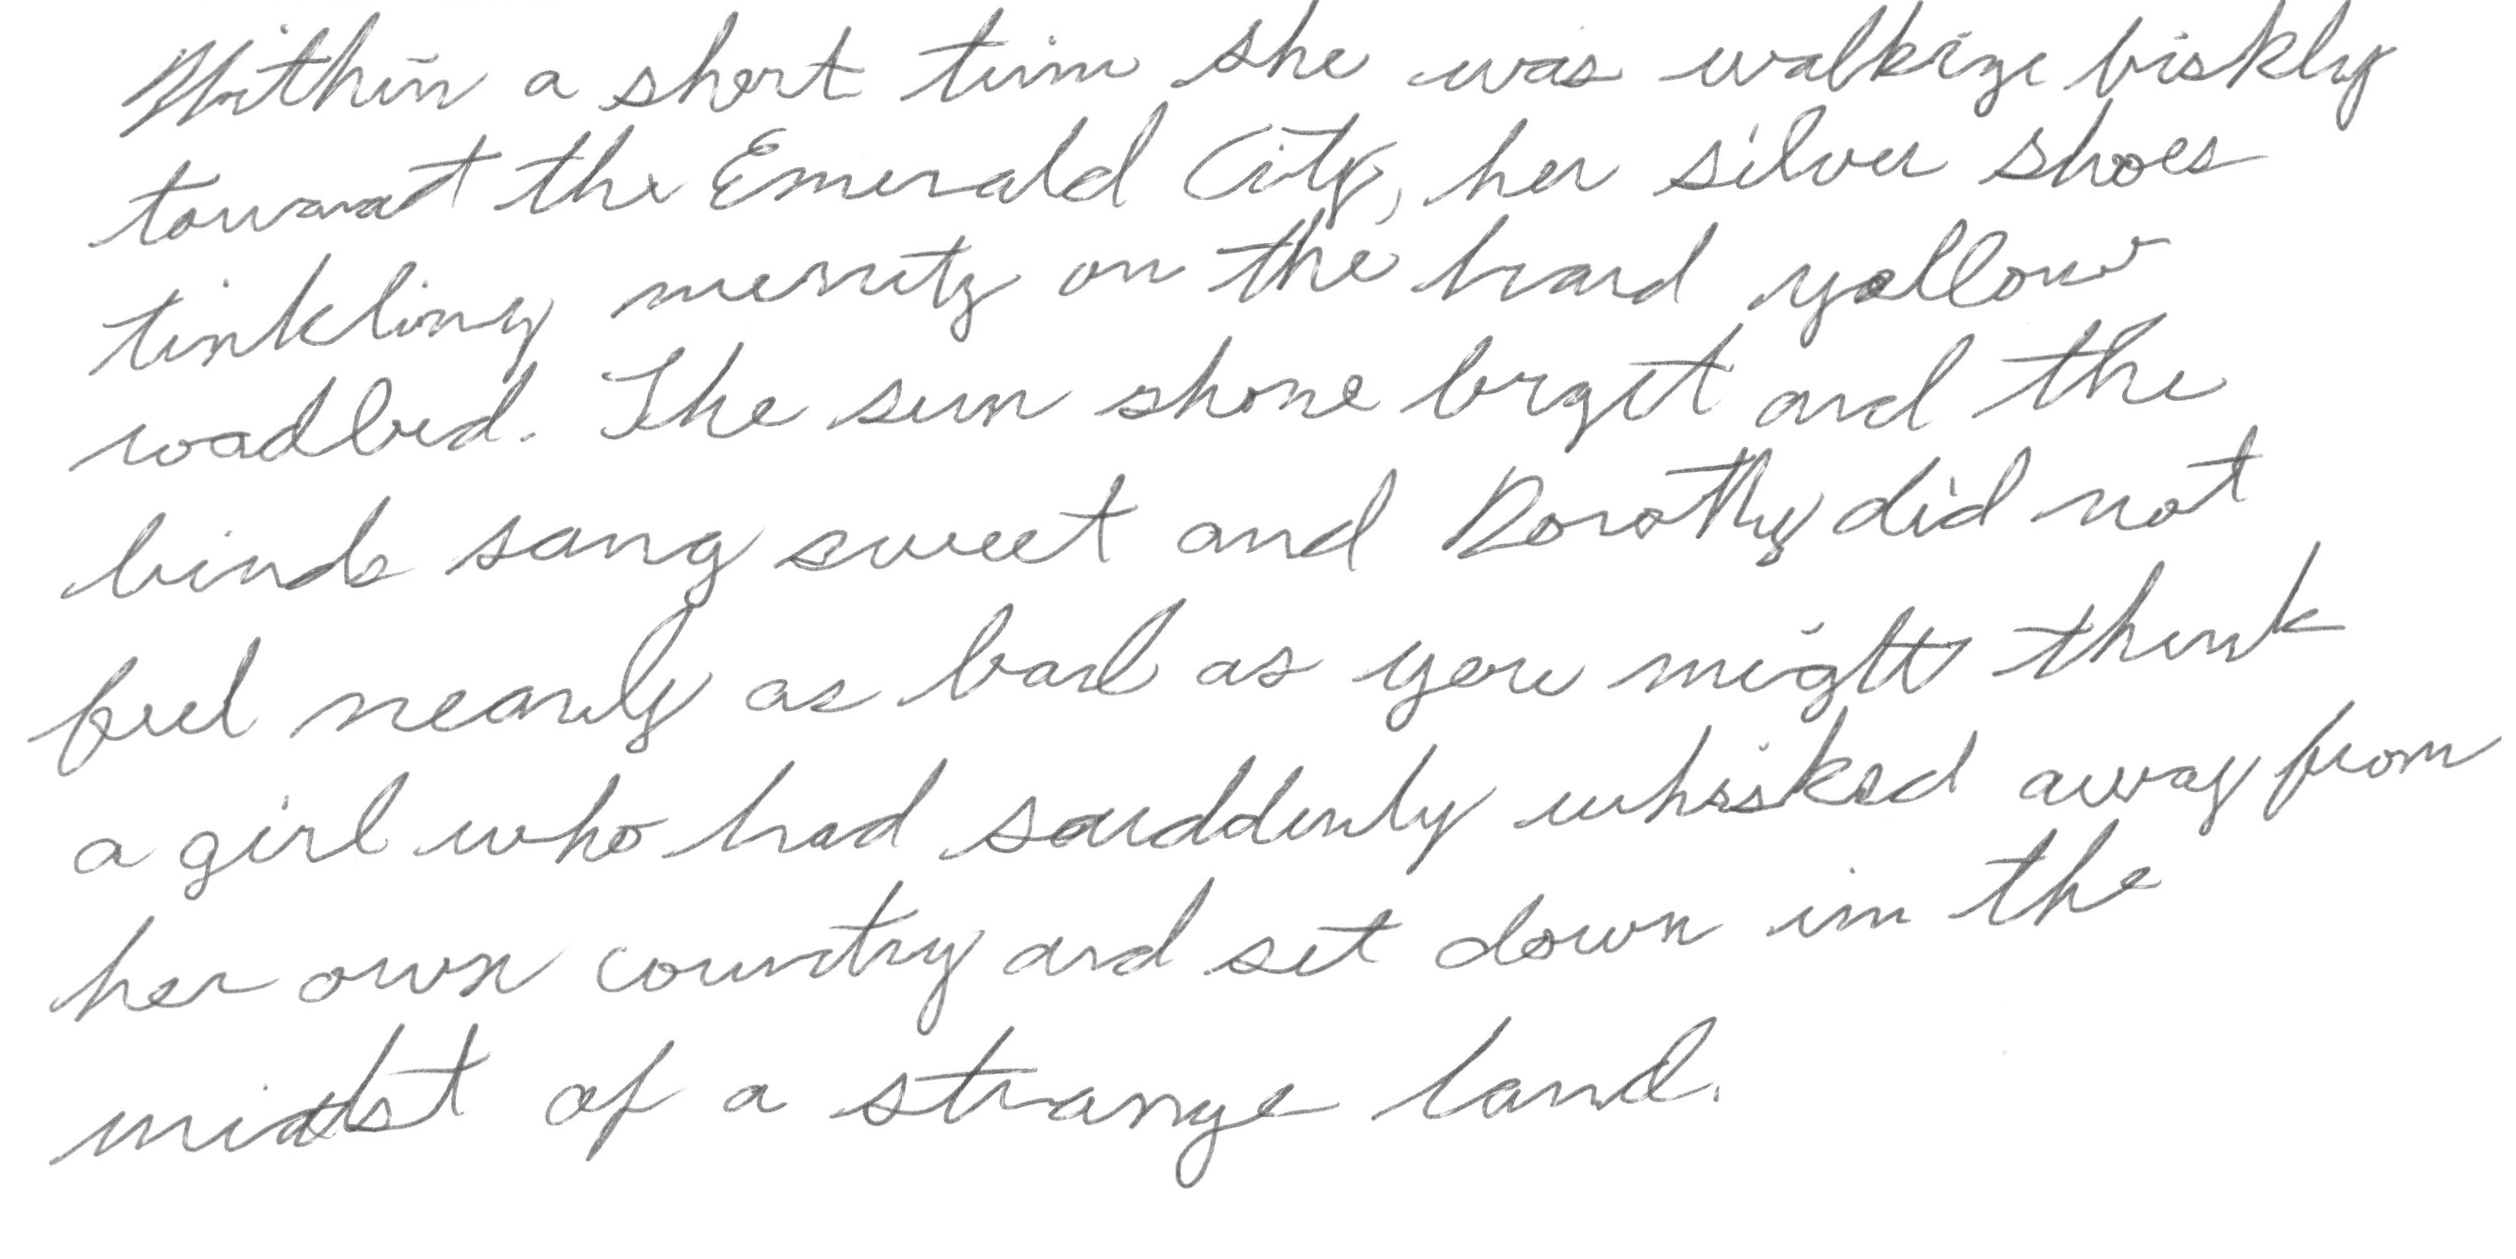 Within a short tim she was walking briskly
toward the Emerald City, her silver shoes
tinkling merrily on the hard yellow
roadbed. The sun shone bright and the
birds sang sweet and Dorothy did not
feel nearly as bad as you might think
a girl who had suddenly whisked away from
her own country and set down in the
midst of a strange land.